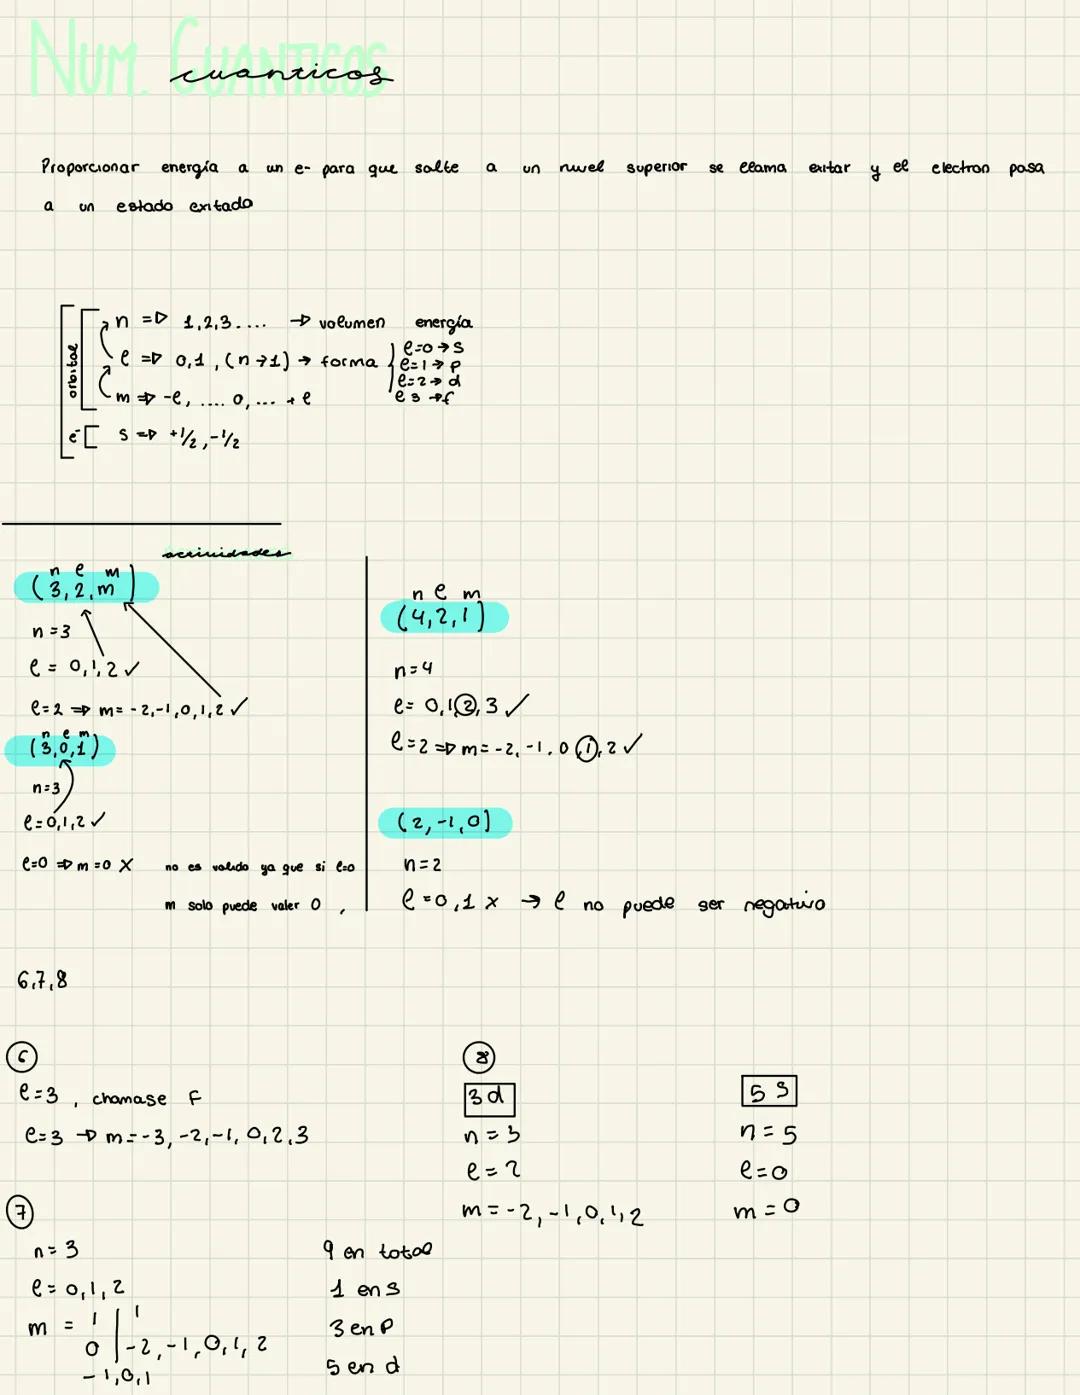 NUM. CUANTICOS
cuanticos
Proporcionar energía a un e- para que salte a un nivel superior se llama exitar y el electron pasa
a un estado exitado
orbital
n => 1,2,3.... → volumen energía
l => 0,1,(n→1) → forma
l=0→s
l=1→p
l=2→d
l 3→f
m => -l, .... 0, ... +l
e- [ s => +1/2, -1/2
actividades
n l m
(3,2,m)
n=3
l = 0,1,2 ✓
l=2 => m= -2,-1,0,1,2 ✓
n l m
(3,0,1)
n=3
l=0,1,2 ✓
l=0 => m=0 X no es valido ya que si l=0
m solo puede valer 0,
n l m
(4,2,1)
n=4
l= 0,1,2,3 ✓
l=2 => m= -2, -1, 0, 1, 2 ✓
(2,-1,0)
n=2
l=0,1 x → l no puede ser negativo
6,7,8
6
l=3, chamase F
l=3 → m=-3,-2,-1,0,2,3
7
n=3
l=0,1,2
m = 1 | 1
0 | -2,-1,0,1,2
-1,0,1
9 en total
1 en s
3 en p
5 en d
8
3d
n=3
l=2
m=-2,-1,0,1,2
5s
n=5
l=0
m=0